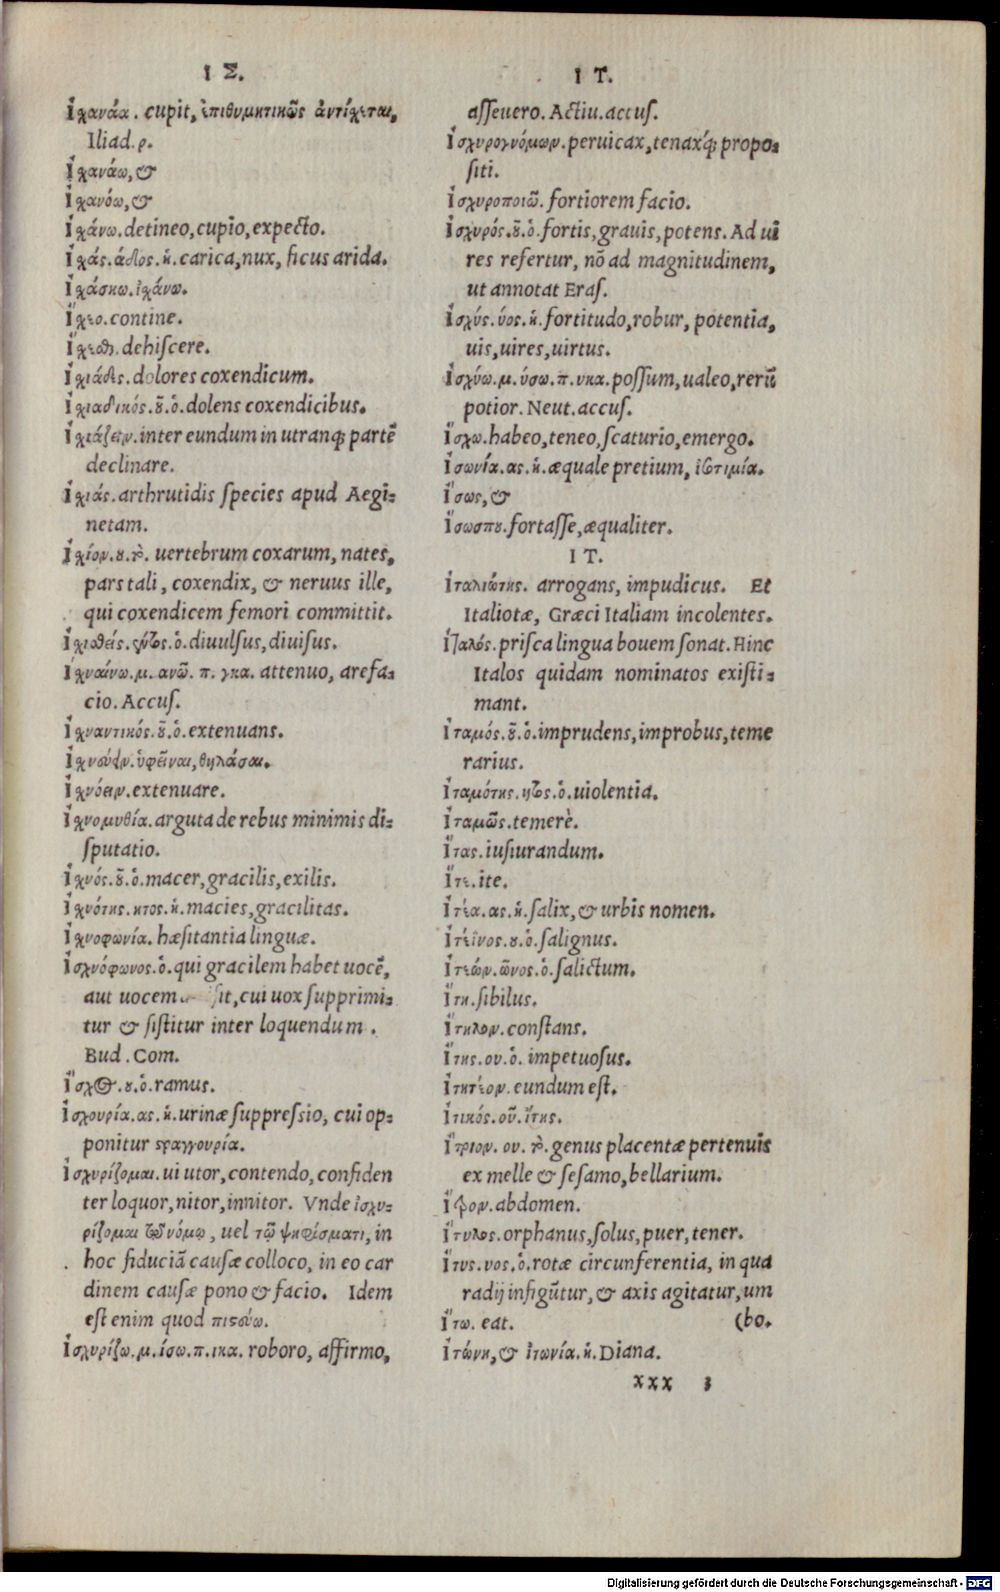 Ι Σ.
Ἰσχανάα. cupit, ἐπιθυμητικῶς ἀντέχεται,
Iliad. ρ.
Ἰσχανάω, &
Ἰσχανόω, &
Ἰσχάνω. detineo, cupio, expecto.
Ἰσχάς. άδος. ἡ. carica, nux, ficus arida.
Ἰσχάσκω. ἰσχάνω.
Ἴσχεο. contine.
Ἴσχεσθαι. dehiscere.
Ἰσχιάδες. dolores coxendicum.
Ἰσχιαδικός. οῦ. ὁ. dolens coxendicibus.
Ἰσχιάζειν. inter eundum in utranq; partē
declinare.
Ἰσχιάς. arthrutidis species apud Aegi-
netam.
Ἰσχίον. ου. τὸ. uertebrum coxarum, nates,
pars tali, coxendix, & neruus ille,
qui coxendicem femori committit.
Ἰσχισθείς. έντος. ὁ. diuulsus, diuisus.
Ἰσχναίνω. μ. ανῶ. π. γκα. attenuo, arefa-
cio. Accus.
Ἰσχναντικός. οῦ. ὁ. extenuans.
ὑφεῖναι, θηλάσαι.
Ἰσχνόειν. extenuare.
Ἰσχνομυθία. arguta de rebus minimis di-
sputatio.
Ἰσχνός. οῦ. ὁ. macer, gracilis, exilis.
Ἰσχνότης. ητος. ἡ. macies, gracilitas.
Ἰσχνοφωνία. hæsitantia linguæ.
Ἰσχνόφωνος. ὁ. qui gracilem habet uocē,
aut uocem sit, cui uox supprimi-
tur & sistitur inter loquendum.
Bud. Com.
Ἴσχος. ου. ὁ. ramus.
Ἰσχουρία. ας. ἡ. urinæ suppressio, cui op-
ponitur στραγγουρία.
Ἰσχυρίζομαι. ui utor, contendo, confiden
ter loquor, nitor, innitor. Vnde ἰσχυ-
ρίζομαι τῷ νόμῳ, uel τῷ ψηφίσματι, in
hoc fiduciā causæ colloco, in eo car
dinem causæ pono & facio. Idem
est enim quod πιστεύω.
Ἰσχυρίζω. μ. ίσω. π. ικα. roboro, affirmo,
Ι Τ.
asseuero. Actiu. accus.
Ἰσχυρογνόμων. peruicax, tenaxq́; propo-
siti.
Ἰσχυροποιῶ. fortiorem facio.
Ἰσχυρός. οῦ. ὁ. fortis, grauis, potens. Ad ui
res refertur, nō ad magnitudinem,
ut annotat Eras.
Ἰσχύς. ύος. ἡ. fortitudo, robur, potentia,
uis, uires, uirtus.
Ἰσχύω. μ. ύσω. π. υκα. possum, ualeo, rerū
potior. Neut. accus.
Ἴσχω. habeo, teneo, scaturio, emergo.
Ἰσωνία. ας. ἡ. æquale pretium, ἰσοτιμία.
Ἴσως, &
Ἴσωσπου. fortasse, æqualiter.
Ι Τ.
Ἰταλιώτης. arrogans, impudicus. Et
Italiotæ, Græci Italiam incolentes.
Ἰταλός. prisca lingua bouem sonat. Hinc
Italos quidam nominatos existi-
mant.
Ἰταμός. οῦ. ὁ. imprudens, improbus, teme
rarius.
Ἰταμότης. ητος. ὁ. uiolentia.
Ἰταμῶς. temerè.
Ἴτας. iusiurandum.
Ἴτε. ite.
Ἰτέα. ας. ἡ. salix, & urbis nomen.
Ἰτέϊνος. ου. ὁ. salignus.
Ἰτεών. ῶνος. ὁ. salictum.
Ἴτη. sibilus.
Ἴτηλον. constans.
Ἴτης. ου. ὁ. impetuosus.
Ἰτητέον. eundum est.
Ἰτικός. οῦ. ἴτης.
Ἴτριον. ου. τὸ. genus placentæ pertenuis
ex melle & sesamo, bellarium.
Ἴτρον. abdomen.
Ἴτυλος. orphanus, solus, puer, tener.
Ἴτυς. υος. ὁ. rotæ circunferentia, in qua
radij infigūtur, & axis agitatur, um
Ἴτω. eat. (bo.
Ἰτώνη, & ἰτωνία. ἡ. Diana.
xxx 3
Digitalisierung gefördert durch die Deutsche Forschungsgemeinschaft - DFG